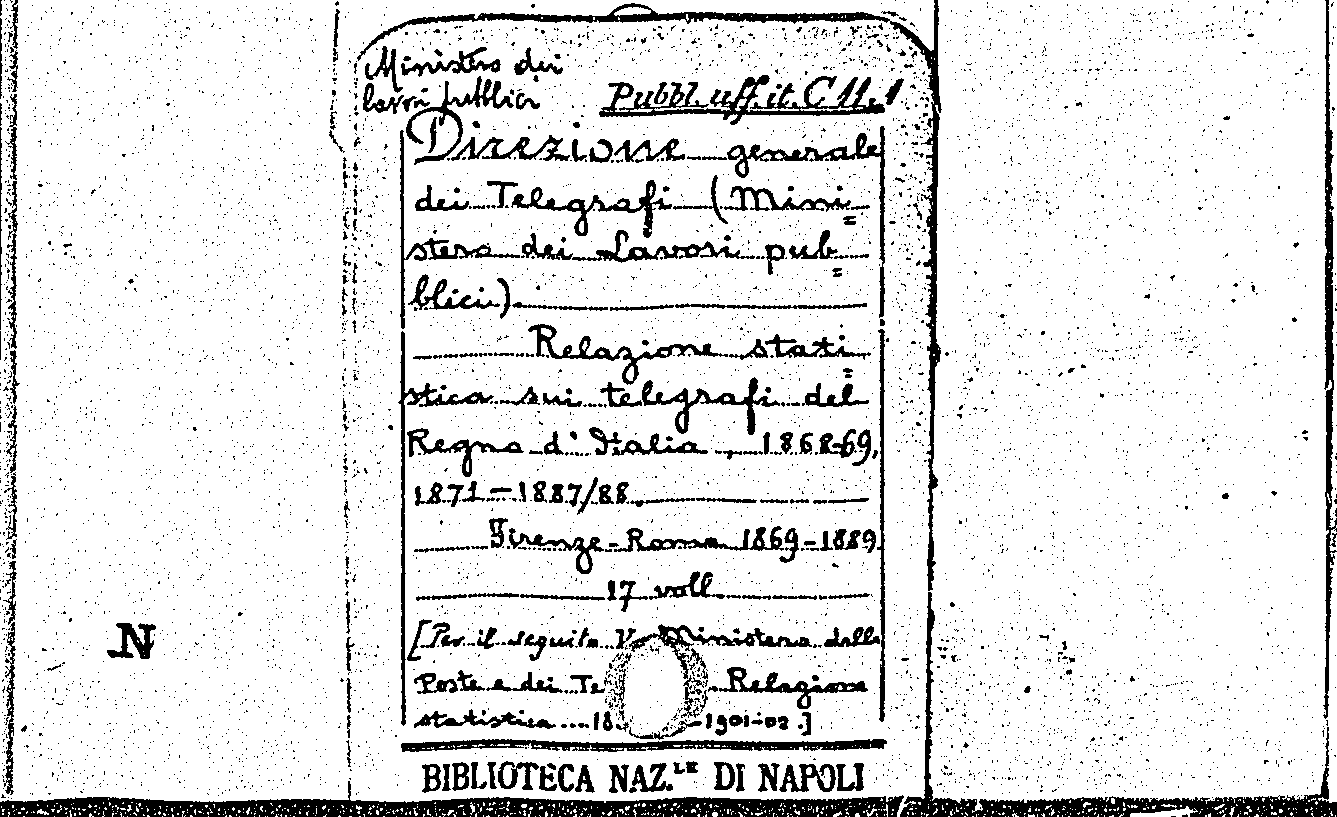 Ministero dei
lavori pubblici
Pubbl. uff. it. C 11. 1
Direzione generale
dei Telegrafi (Mini=
stero dei Lavori pub=
blici).
Relazione stati=
stica sui telegrafi del
Regno d'Italia, 1868-69,
1871-1887/88.
Firenze-Roma 1869-1889
17 voll.
[Per il seguito V. Ministero delle
Poste e dei Te Relazione
statistica....18 -1901-02.]
BIBLIOTECA NAZ.LE DI NAPOLI
N